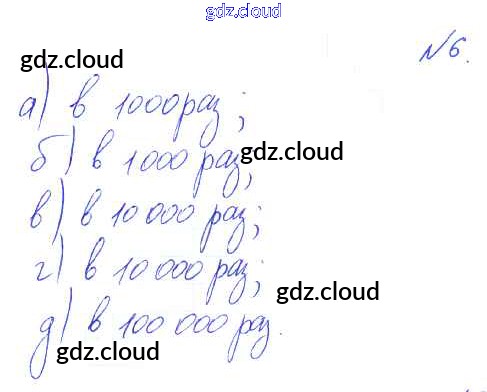 gdz.cloud
№6.
gdz.cloud
а) в 1000 раз;
б) в 1000 раз; gdz.cloud
в) в 10 000 раз;
г) в 10 000 раз;
gdz.cloud
д) в 100 000 раз.
gdz.cloud